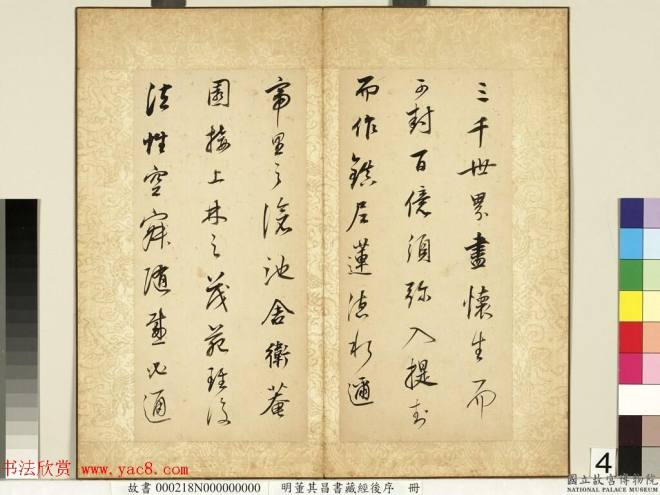 三千世界盡懷生而
可封百億須弥入提封
而作鎮尼蓮德水邇
帝里之滄池舍衛菴
園接上林之茂苑雖復
法性空寂随感必通
4
國立故宮博物院
NATIONAL PALACE MUSEUM
书法欣赏 www.yac8.com
故書 000218N000000000 明董其昌書藏經後序 冊